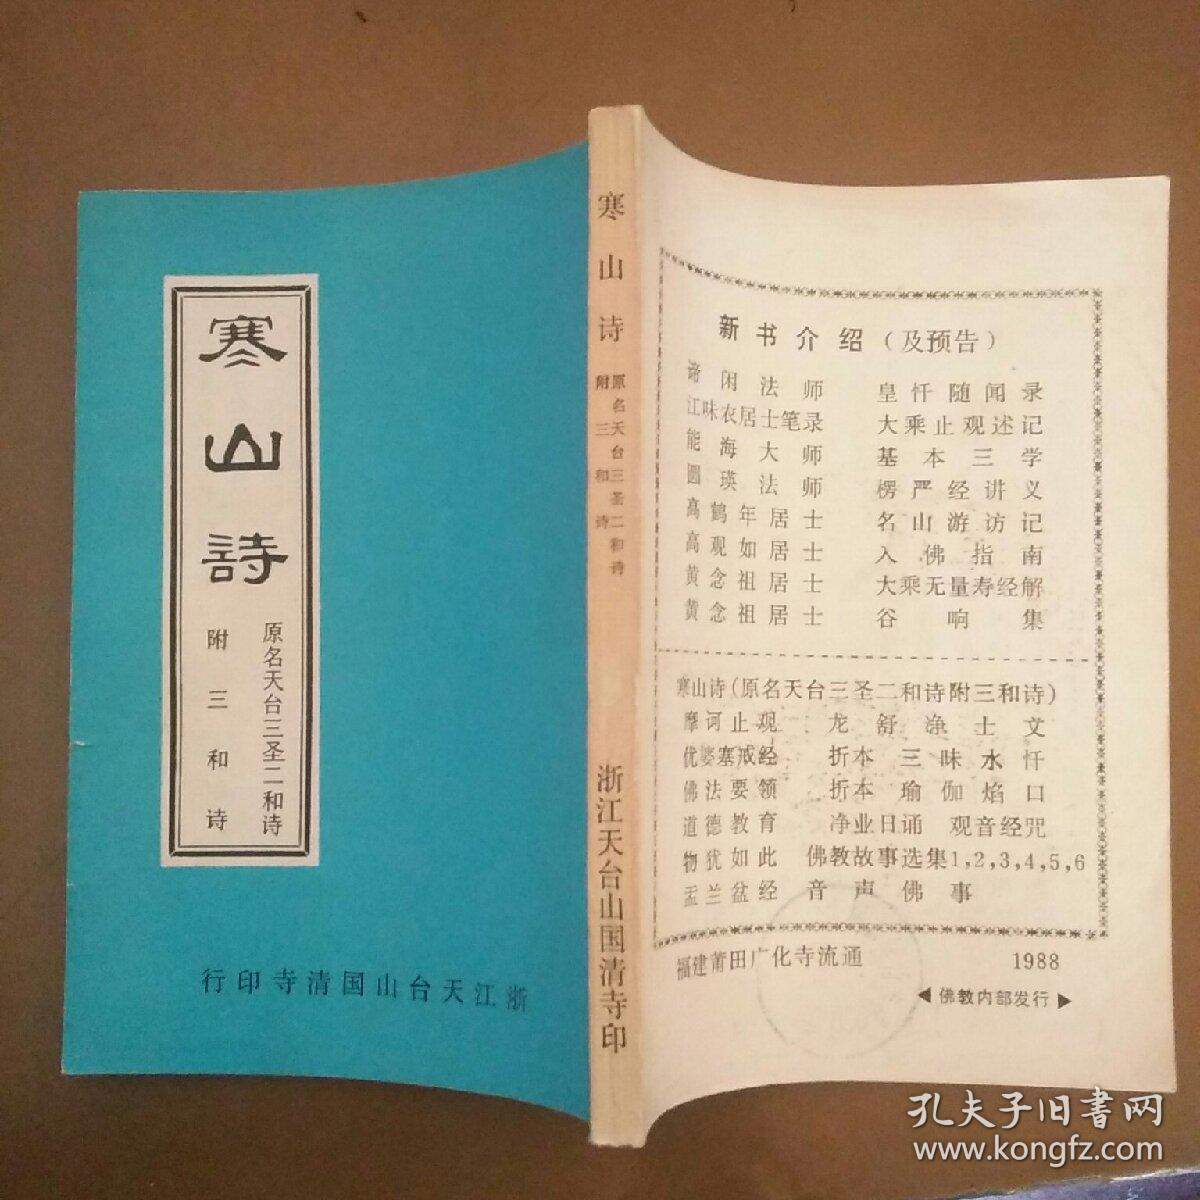 寒山詩
原名天台三圣二和诗
附三和诗
行印寺清国山台天江浙
寒山诗
原名天台三圣二和诗
附三和诗
浙江天台山国清寺印
新书介绍(及预告)
谛闲法师 皇忏随闻录
江味农居士笔录 大乘止观述记
能海大师 基本三学
圆瑛法师 楞严经讲义
高鹤年居士 名山游访记
高观如居士 入佛指南
黄念祖居士 大乘无量寿经解
黄念祖居士 谷响集
寒山诗(原名天台三圣二和诗附三和诗)
摩诃止观 龙舒净土文
优婆塞戒经 折本三昧水忏
佛法要领 折本瑜伽焰口
道德教育 净业日诵 观音经咒
物犹如此 佛教故事选集1,2,3,4,5,6
盂兰盆经 音声佛事
福建莆田广化寺流通 1988
◀佛教内部发行▶
孔夫子旧书网
www.kongfz.com